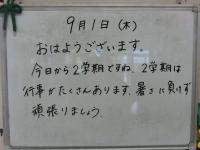 9月1日(木)
おはようございます。
今日から2学期ですね。2学期は
行事がたくさんあります。暑さに負けず
頑張りましょう。